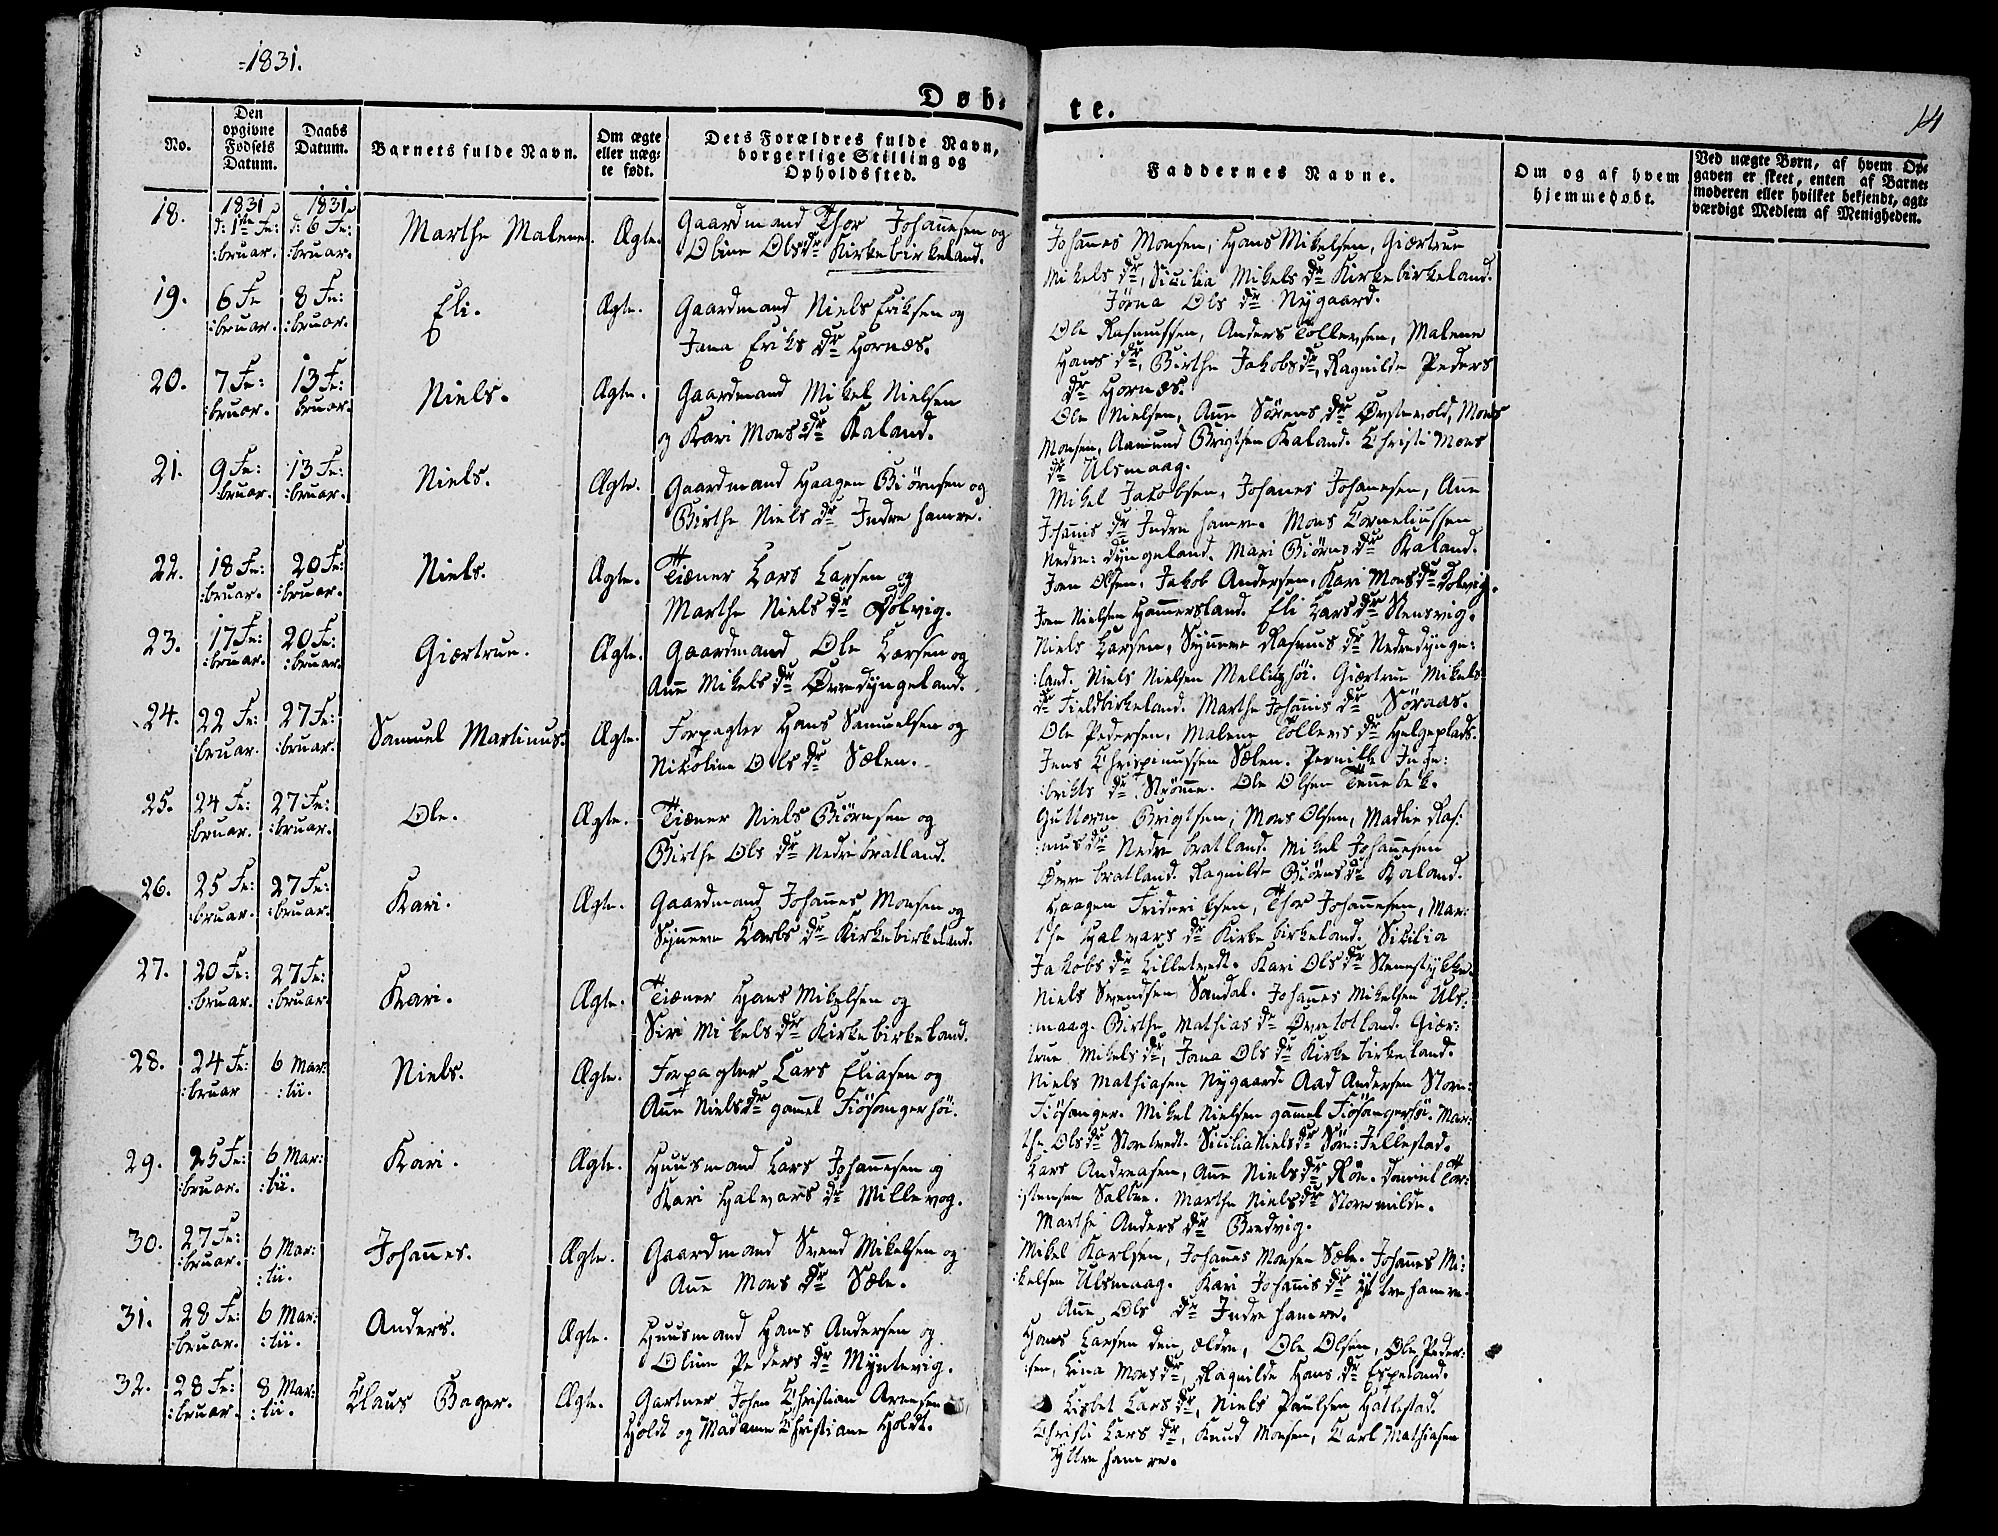 =1831.
Døb-
te.
14
No.
Den
opgivne
Fødsels
Datum.
Daabs
Datum.
Barnets fulde Navn.
Om ægte
eller uæg-
te født.
Dets Forældres fulde Navn,
borgerlige Stilling og
Opholdssted.
Faddernes Navne.
Om og af hvem
hjemmedøbt.
Ved uægte Børn, af hvem Op-
gaven er skeet, enten af Barne-
moderen eller hvilket bekjendt, agt-
værdigt Medlem af Menigheden.
18.
1831
d: 1ste Fe:
:bruar.
1831
d: 6 Fe:
:bruar.
Marthe Malene.
Ægte.
Gaardmand Thor Johannesen og
Oline Olsdr Kirkebirkeland.
Johannes Monsen, Hans Mikelsen, Giærtrue
Mikels dr, Sicilia Mikels dr Kirkebirkeland.
Jørna Ols dr Nygaard.
19.
6 Fe
:bruar.
8 Fe:
:bruar.
Eli.
Ægte.
Gaardmand Niels Eriksen og
Jana Eriks dr Hornæs.
Ole Rasmussen, Anders Tollevsen, Malene
Hans dr, Birthe Jakobsdr, Ragnilde Peders
dr Hornæs.
20.
7 Fe:
:bruar.
13 Fe:
bruar.
Niels.
Ægte.
Gaardmand Mikel Nielsen
og Kari Mons dr Kaland.
Ole Nielsen, Anne Sørens dr Øvstevold, Mons
Monsen, Aamund Brigtsen Kaland. Christi Mons
dr Ulsmaag.
21.
9 Fe:
:bruar.
13 Fe:
:bruar.
Niels.
Ægte.
Gaardmand Haagen Biørnsen og
Birthe Niels dr Indre hamre.
Mikel Jakobsen, Johanes Johanesen, Ane
Johanis dr Indre hamre. Mons Corneliussen
Nedre: dyngeland. Mari Biørns dr Kaland.
22.
18 Fe:
:bruar.
20 Fe:
:bruar.
Niels.
Ægte.
Tiener Lars Larsen og
Marthe Niels dr Dolvig.
Joen Olsen, Jakob Andersen, Kari Mons dr Dolvig.
Joen Nielsen Hammersland. Eli Lars dr Stensvig.
23.
17 Fe:
:bruar.
20 Fe:
:bruar.
Giærtrue.
Ægte.
Gaardmand Ole Larsen og
Ane Mikels dr Øvredyngeland.
Niels Larsen, Synneve Rasmus dr Nedredynge:
:land. Niels Nielsen Mellinghøi. Giærtrue Mikels
dr Fieldbirkeland. Marthe Johanis dr Sørnas.
24.
22 Fe:
:bruar.
27 Fe:
:bruar.
Samuel Martinus.
Ægte.
Forpagter Hans Samuelsen og
Nikoline Ols dr Sælen.
Ole Pedersen, Malene Tollevs dr Helgeplads.
Jens Chrispinussen Sælen. Pernille Inge:
:brikts dr Strømme. Ole Olsen Tennebek.
25.
24 Fe:
:bruar.
27 Fe:
:bruar.
Ole.
Ægte.
Tiæner Niels Biørnsen og
Birthe Ols dr Nedrebratland.
Guttorm Brigtsen, Mons Olsen, Madlie Ras:
:mus dr Nedre bratland. Mikel Johannesen
Øvre bratland. Ragnilde Biørns dr Kaland.
26.
25 Fe:
:bruar.
27 Fe:
:bruar.
Kari.
Ægte.
Gaardmand Johannes Monsen og
Synneve Larls dr Kirkebirkeland.
Haagen Frideriksen, Thor Johannesen, Mar:
the Halvars dr Kirkebirkeland. Sicilia
Jakobs dr Lilletvedt. Kari Ols dr Steenstykke.
27.
20 Fe:
:bruar.
27 Fe:
:bruar.
Kari.
Ægte.
Tiæner Hans Mikelsen og
Siri Mikels dr Kirkebirkeland.
Niels Svendsen Sandal. Johannes Mikelsen Uls:
:maag. Birthe Mathias dr Øvretotland. Giær:
true Mikels dr, Jana Ols dr Kirkebirkeland.
28.
24 Fe:
:bruar
6 Mar:
:tii.
Niels.
Ægte.
Forpagter Lars Eliasen og
Ane Nielsdr gamel Fiøsangerhøi.
Niels Mathiasen Nygaard. Aad Andersen Store:
Fiøsanger. Mikel Nielsen gammel Fiøsangerhøi. Mar:
the Ols dr Stortvedt. Sicilia Niels dr Sør: Jellestad.
29.
25 Fe:
:bruar.
6 Mar:
:tii.
Kari.
Ægte.
Huusmand Lars Johannesen og
Kari Halvars dr Millevog.
Lars Andreasen, Ane Niels dr Røn. Daniel Tor:
:stensen Salbue. Marthe Niels dr Storemilde.
Marthe Anders dr Bredvig.
30.
27 Fe:
:bruar.
6 Mar:
:tii.
Johannes.
Ægte.
Gaardmand Svend Mikelsen og
Ane Mons dr Sæle.
Mikel Karlsen, Johannes Monsen Sæle. Johannes Mi:
:kelsen Ulsmaag. Kari Johanis dr Ystrehamre.
Ane Ols dr Indre hamre.
31.
28 Fe:
:bruar.
6 Mar:
:tii.
Anders.
Ægte.
Huusmand Hans Andersen og
Oline Peders dr Myntevig.
Hans Larsen den ældre, Ole Olsen, Ole Peder:
:sen, Lina Mons dr, Ragnilde Hans dr Espeland.
32.
28 Fe:
:bruar.
8 Mar:
:tii.
Claus Bager.
Ægte.
Gartner Johan Christian Arensen
Holdt og Madame Christiane Holdt.
Lisbet Lars dr, Niels Paulsen Hatlestad.
Christi Lars dr, Knud Monsen, Carl Mathiasen
Yttre hamre.